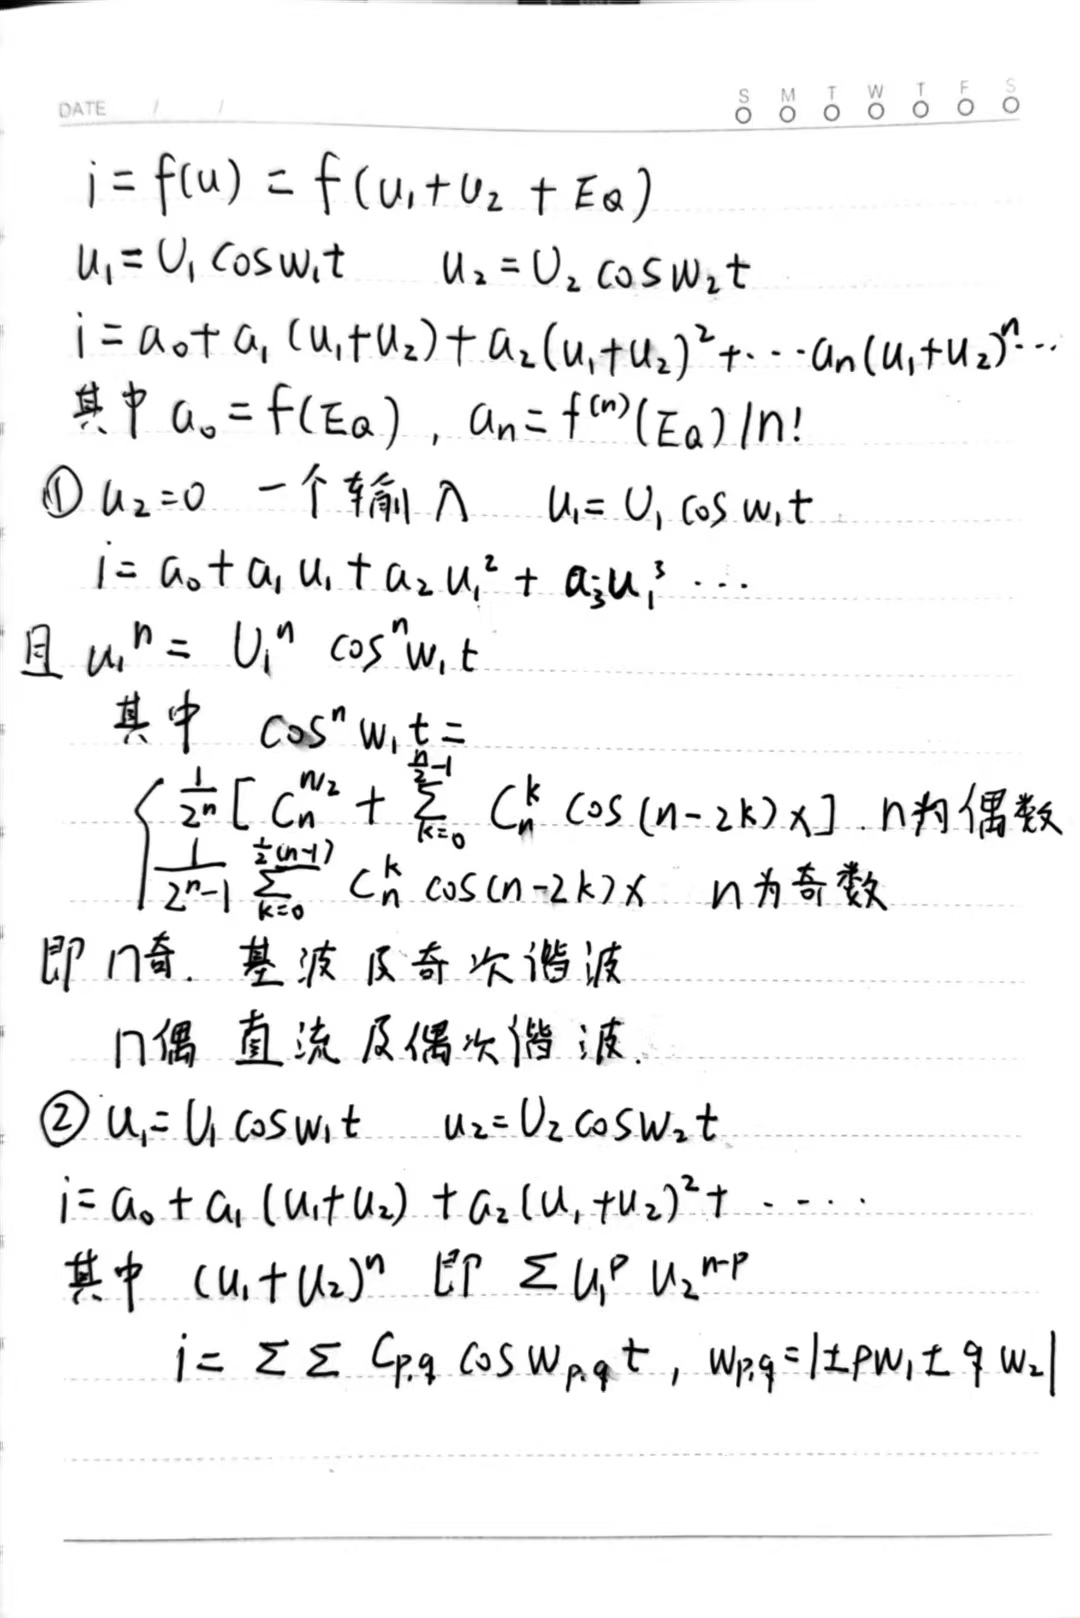 DATE / / S M T W T F S
i = f(u) = f(u₁+u₂ + E_Q)
u₁=U₁ cosw₁t u₂=U₂ cosw₂t
i = a₀+a₁(u₁+u₂)+a₂(u₁+u₂)²+···aₙ(u₁+u₂)ⁿ···
其中 a₀=f(E_Q), aₙ=f⁽ⁿ⁾(E_Q)/n!
① u₂=0 一个输入 u₁=U₁ cosw₁t
i= a₀+a₁u₁+a₂u₁²+a₃u₁³ ···
且 u₁ⁿ= U₁ⁿ cosⁿw₁t
其中 cosⁿw₁t=
{ 1/2ⁿ [C_n^{n/2} + Σ_{k=0}^{n/2-1} C_n^k cos(n-2k)x]. n为偶数
1/2ⁿ-1 Σ_{k=0}^{½(n-1)} C_n^k cos(n-2k)x n为奇数
即 n奇. 基波及奇次谐波
n偶 直流及偶次谐波.
② u₁=U₁cosw₁t u₂=U₂cosw₂t
i=a₀+a₁(u₁+u₂)+a₂(u₁+u₂)²+ ·····
其中 (u₁+u₂)ⁿ 即 Σu₁ᵖ u₂ⁿ⁻ᵖ
i= ΣΣ C_{p,q} cosw_{p,q}t, w_{p,q}=|±pw₁±qw₂|